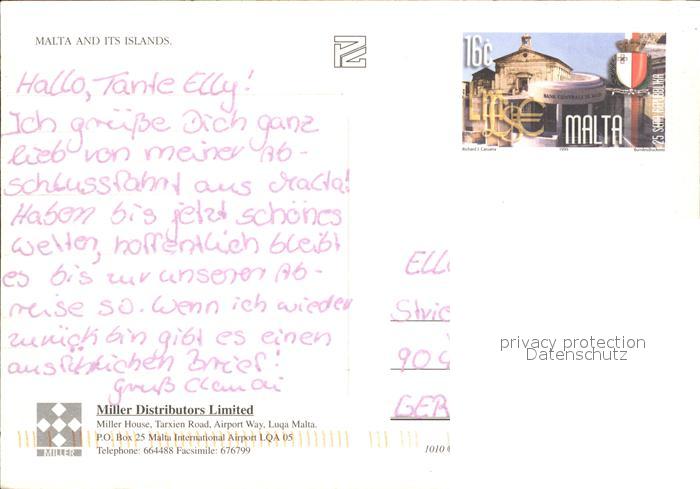 MALTA AND ITS ISLANDS.
PZ
16c
BANK CENTRALI TA' MALTA
MALTA
25 SENA REPUBBLIKA
Richard J. Caruana 1999 Bundesdruckerei
Hallo, Tante Elly!
Ich grüße Dich ganz
lieb von meiner Ab-
schlussfahrt aus Malta!
Haben bis jetzt schönes
Wetter, hoffentlich bleibt
es bis zur unserer Ab-
reise so. Wenn ich wieder
zurück bin gibt es einen
ausführlichen Brief!
Gruß
Elly
GER
privacy protection
Datenschutz
Miller Distributors Limited
Miller House, Tarxien Road, Airport Way, Luqa Malta.
P.O. Box 25 Malta International Airport LQA 05
Telephone: 664488 Facsimile: 676799
MILLER
1010